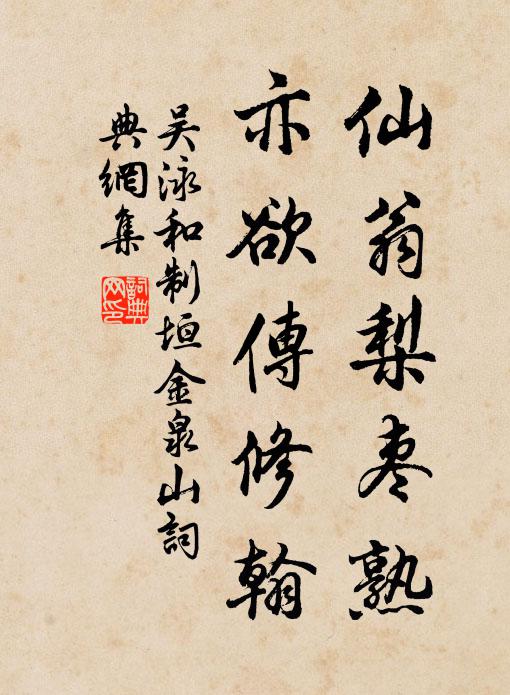 仙翁梨枣熟
亦欲傳修翰
吳泳和制垣金泉山詞
典網集
詞典网印